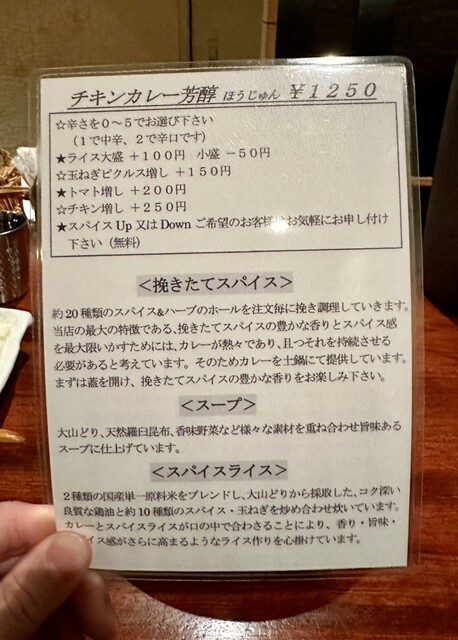 チキンカレー芳醇 ほうじゅん ￥1250
☆辛さを0～5でお選び下さい
（1で中辛、2で辛口です）
★ライス大盛 +100円 小盛 -50円
☆玉ねぎピクルス増し +150円
★トマト増し +200円
☆チキン増し +250円
★スパイス Up 又は Down ご希望のお客様はお気軽にお申し付け
下さい（無料）
＜挽きたてスパイス＞
約20種類のスパイス&ハーブのホールを注文毎に挽き調理していきます。
当店の最大の特徴である、挽きたてスパイスの豊かな香りとスパイス感
を最大限いかすためには、カレーが熱々であり、且つそれを持続させる
必要があると考えています。そのためカレーを土鍋にて提供しています。
まずは蓋を開け、挽きたてスパイスの豊かな香りをお楽しみ下さい。
＜スープ＞
大山どり、天然羅臼昆布、香味野菜など様々な素材を重ね合わせ旨味ある
スープに仕上げています。
＜スパイスライス＞
2種類の国産単一原料米をブレンドし、大山どりから採取した、コク深い
良質な鶏油と約10種類のスパイス・玉ねぎを炒め合わせ炊いています。
カレーとスパイスライスが口の中で合わさることにより、香り・旨味・
イス感がさらに高まるようなライス作りを心掛けています。